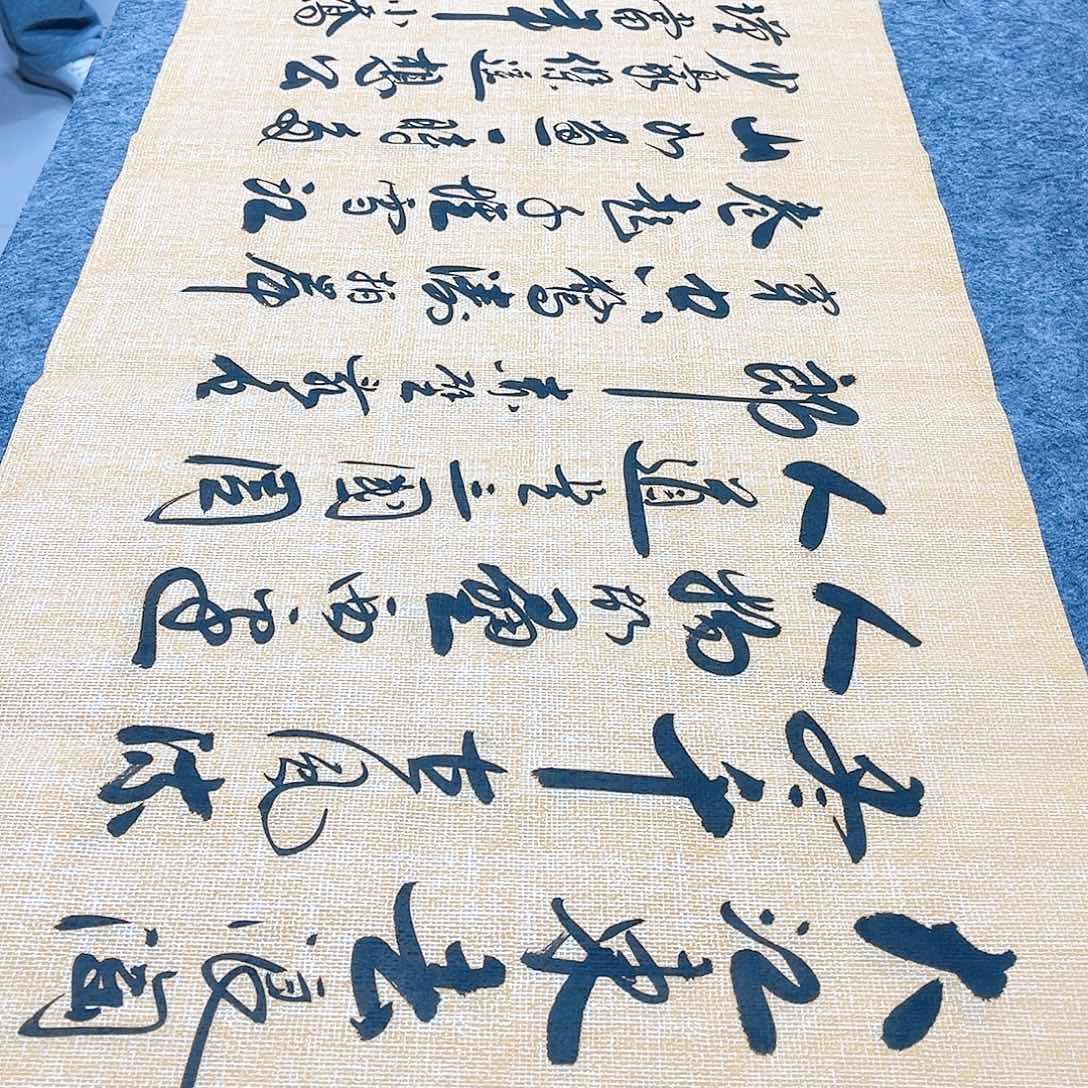 大江東去浪淘
尽千古風流
人物故壘西邊
人道是三國周
郎赤壁乱石
穿空驚濤拍岸
卷起千堆雪江
山如畫一時多
少豪傑遥想公
瑾當年小喬